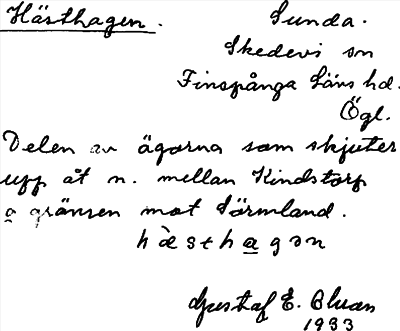 Hästhagen. Sunda.
Skedevi sn
Finspånga läns hd.
Ögl.
Delen av ägorna som skjuter
upp åt n. mellan Kindstorp
o gränsen mot Sörmland.
hàsthagən
Gustaf E. Bluan
1933